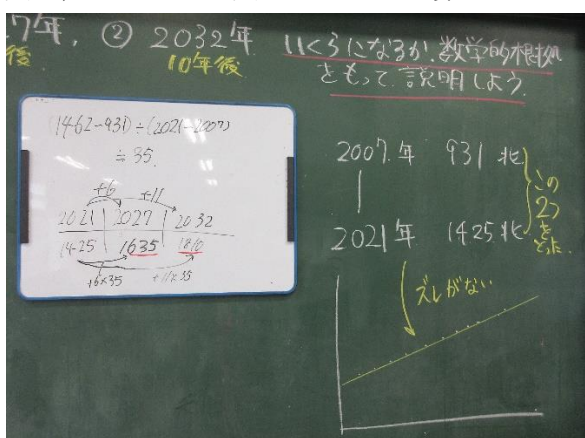 7年, ② 2032年
後 10年後
いくらになるか, 数学的根拠
をもって説明しよう.
(1462-931)÷(2021-2007)
≒35
+6 +11
2021 2027 2032
1425 1635 1810
+6×35 +11×35
2007年 931兆
2021年 1425兆
この
2つ
を
とった
ズレがない